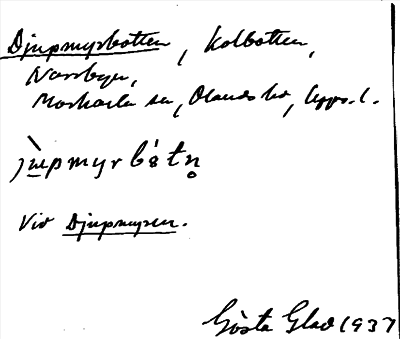 Djupmyrbotten, Kolbotten,
Norrbyn,
Morkarla sn, Olands hd, Upps. l.
jùpmyrbòtn̥
Vid Djupmyren.
Gösta Glad 1937